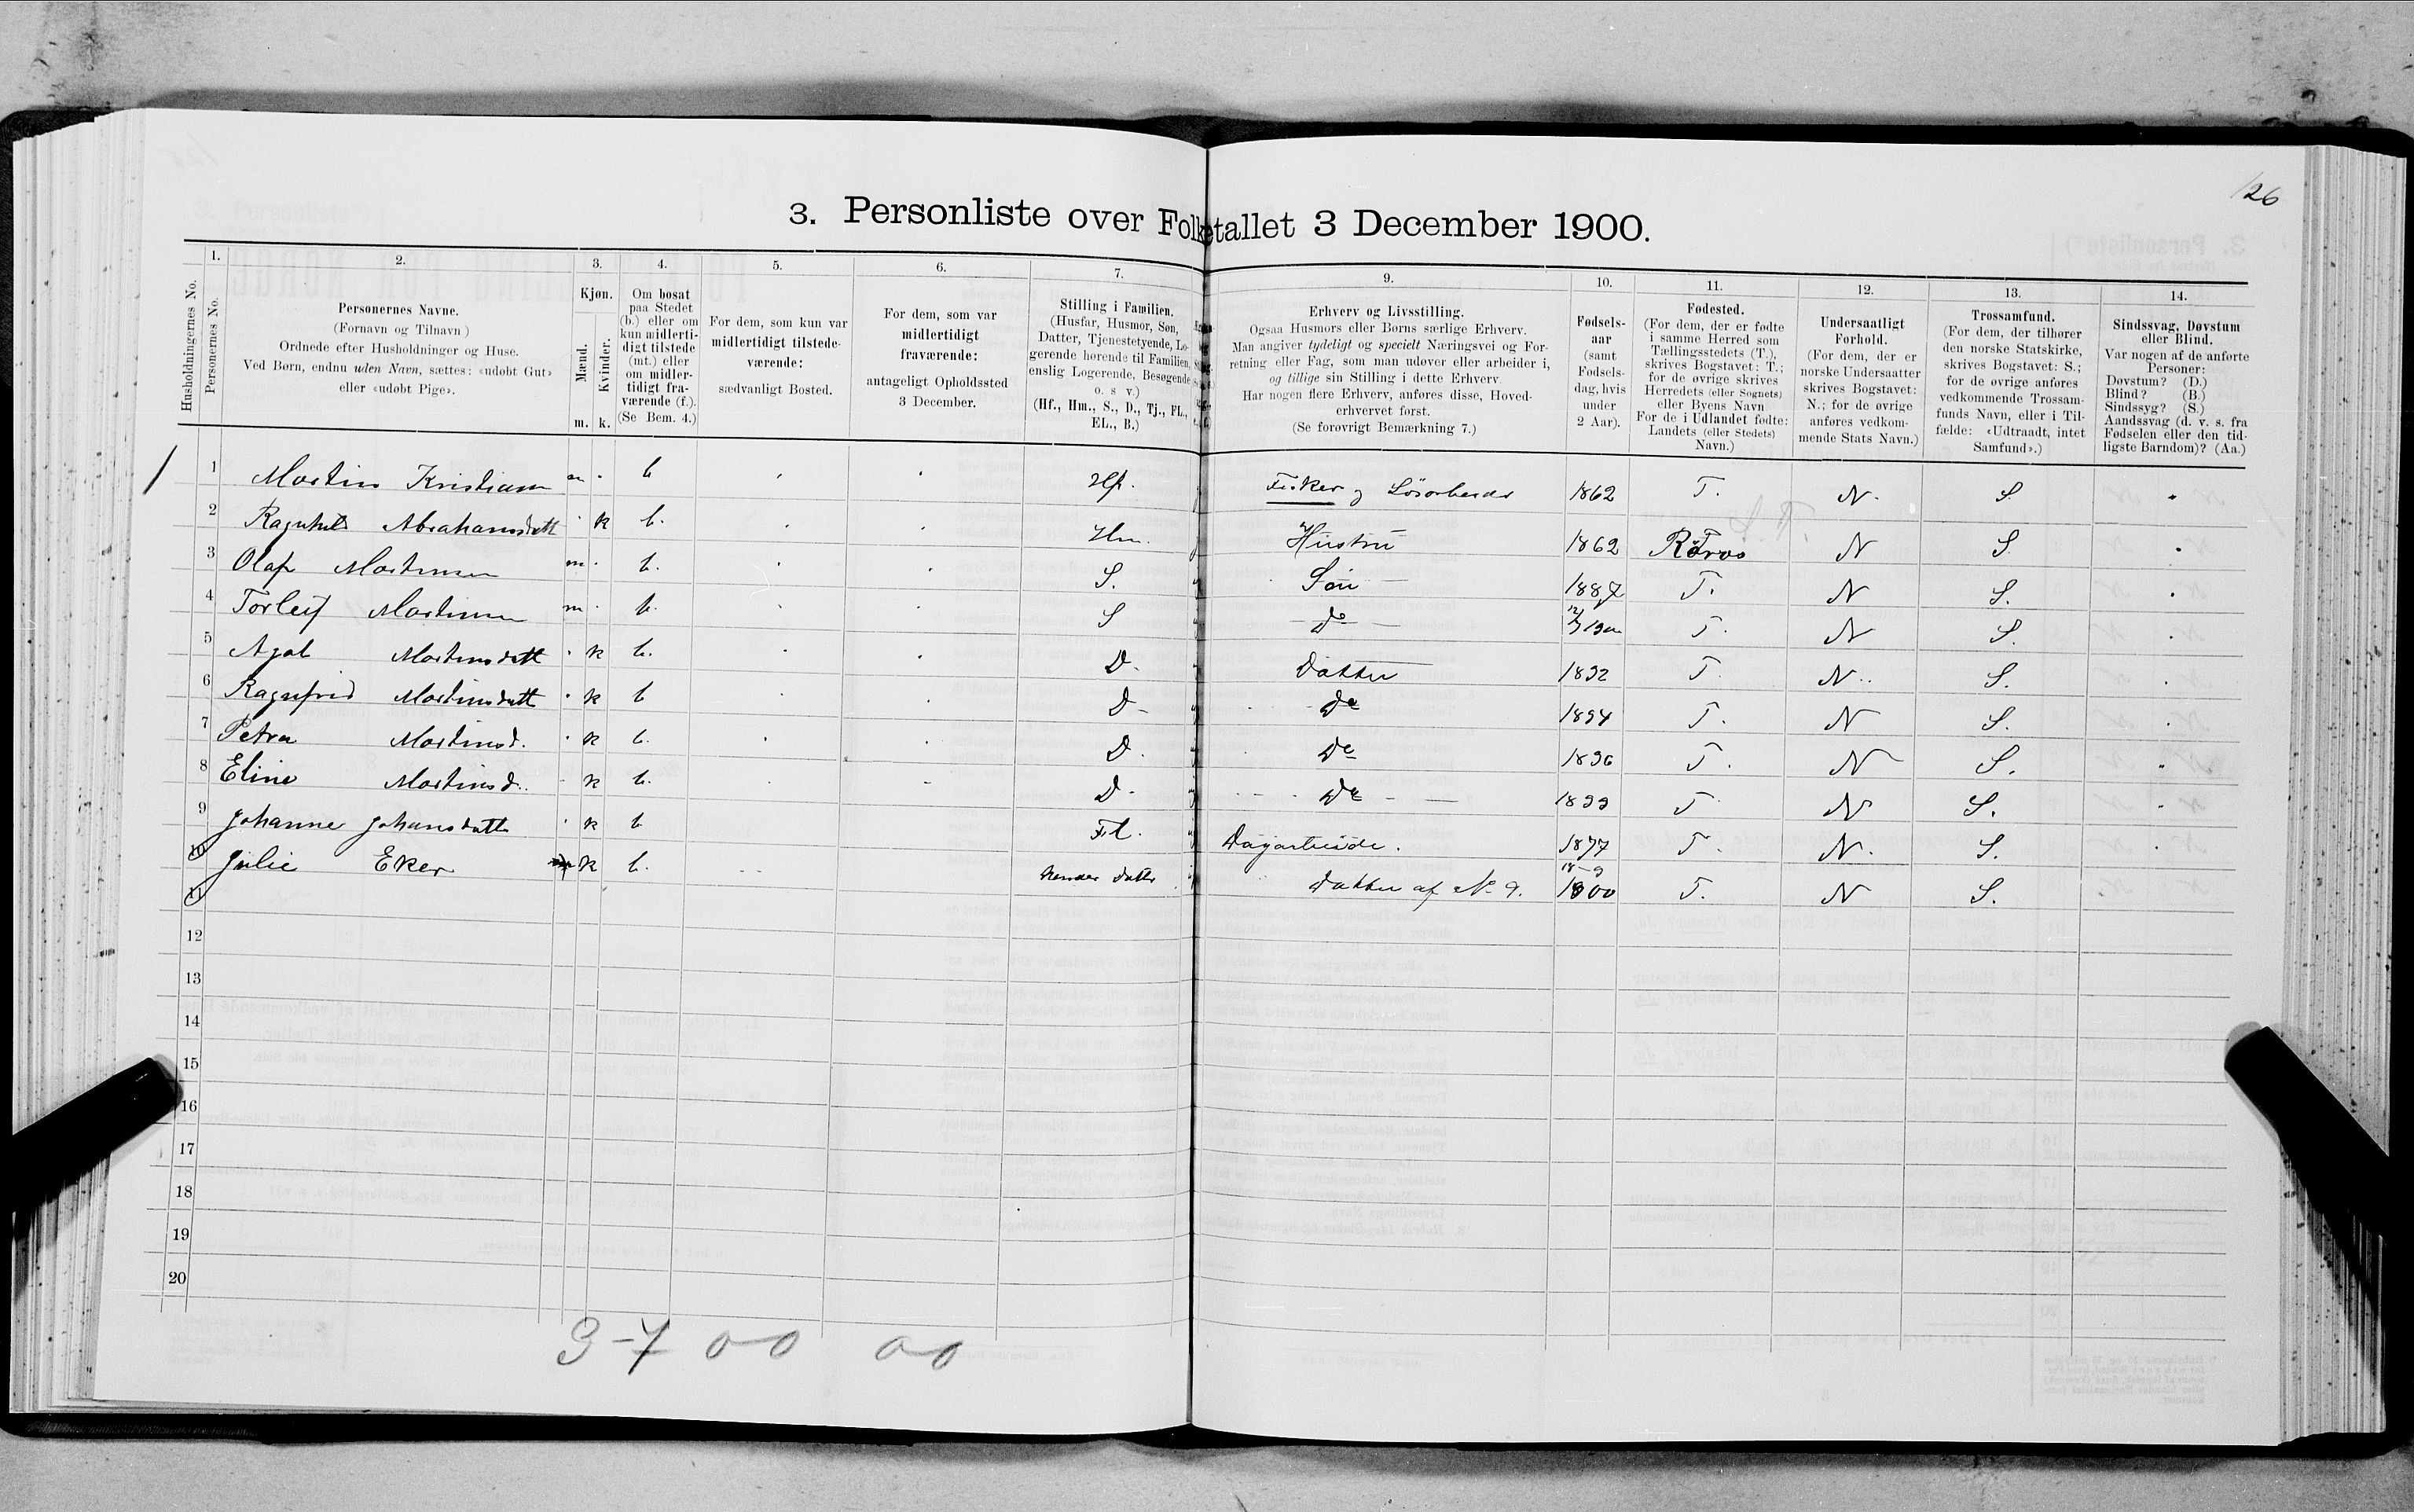 126
3. Personliste over Folketallet 3 December 1900.
Husholdningernes No.
1.
Personernes No.
2.
Personernes Navne.
(Fornavn og Tilnavn)
Ordnede efter Husholdninger og Huse.
Ved Børn, endnu uden Navn, sættes: «udøbt Gut»
eller «udøbt Pige».
3.
Kjøn.
Mænd.
Kvinder.
m. k.
4.
Om bosat
paa Stedet
(b.) eller om
kun midlerti-
digt tilstede
(mt.) eller
om midler-
tidigt fra-
værende (f.).
(Se Bem. 4.)
5.
For dem, som kun var
midlertidigt tilstede-
værende:
sædvanligt Bosted.
6.
For dem, som var
midlertidigt
fraværende:
antageligt Opholdssted
3 December.
7.
Stilling i Familien.
(Husfar, Husmor, Søn,
Datter, Tjenestetyende, Lo-
gerende hørende til Familien,
enslig Logerende, Besøgende
o. s v.)
(Hf., Hm., S., D., Tj., FL.,
EL., B.)
9.
Erhverv og Livsstilling.
Ogsaa Husmors eller Børns særlige Erhverv.
Man angiver tydeligt og specielt Næringsvei og For-
retning eller Fag, som man udøver eller arbeider i,
og tillige sin Stilling i dette Erhverv.
Har nogen flere Erhverv, anføres disse, Hoved-
erhvervet først.
(Se forøvrigt Bemærkning 7.)
10.
Fødsels-
aar
(samt
Fødsels-
dag, hvis
under
2 Aar).
11.
Fødested.
(For dem, der er fødte
i samme Herred som
Tællingsstedets (T.),
skrives Bogstavet: T.;
for de øvrige skrives
Herredets (eller Sognets)
eller Byens Navn
For de i Udlandet fødte:
Landets (eller Stedets)
Navn.)
12.
Undersaatligt
Forhold.
(For dem, der er
norske Undersaatter
skrives Bogstavet:
N.; for de øvrige
anføres vedkom-
mende Stats Navn.)
13.
Trossamfund.
(For dem, der tilhører
den norske Statskirke,
skrives Bogstavet: S.;
for de øvrige anføres
vedkommende Trossam-
funds Navn, eller i Til-
fælde: «Udtraadt, intet
Samfund».)
14.
Sindssvag, Døvstum
eller Blind.
Var nogen af de anførte
Personer:
Døvstum? (D.)
Blind? (B.)
Sindssyg? (S.)
Aandssvag (d. v. s. fra
Fødselen eller den tid-
ligste Barndom)? (Aa.)
1 Martin Kristiansen m b Hf. Fisker og Løsarbeider 1862 T. N. S.
2 Ragnhild Abrahamsdatt k b. Hm. Hustru 1862 Røros N S.
3 Olaf Martinsen m b. S. Søn 1887 T. N S.
4 Torleif Martinsen m b. S Do T. N S.
5 Agot Martinsdatt k b. D. Datter 1892 T. N. S.
6 Ragnfrid Martinsdatt k b D Do 1894 T. N S.
7 Petra Martinsd. k b. D. Do 1896 T. N S.
8 Eline Martinsd. k b. D. Do 1899 T N S.
9 Johanne Johansdatt k b F.L. Dagarbeide. 1877 T. N. S.
10 Julie Eker k b. hendes Datter Datter af No 9. 18-9 1900 T. N S.
11
12
13
14
15
16
17
18
19
20
3-7 0-0 0-0